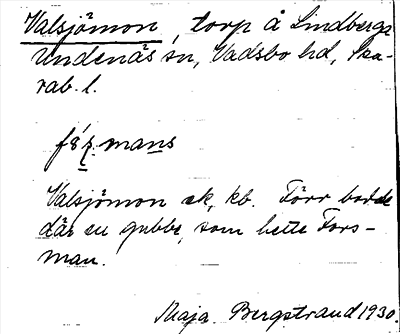 Valsjömon, torp å Lindberga
Undenäs sn, Vadsbo hd, Ska-
rab. l.
Valsjömon ek, kb. Förr bodde
där en gubbe, som hette Fors-
man.
Maja Bergstrand 1930.